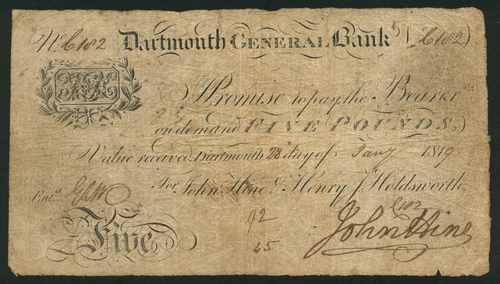 No. C182 Dartmouth General Bank (C182)
I Promise to pay the Bearer
on demand FIVE POUNDS,
Value received, Dartmouth 28 day of Jany 1819
For John Hine & Henry J Holdsworth
Entd.
92
C182
Five
65
John Hine